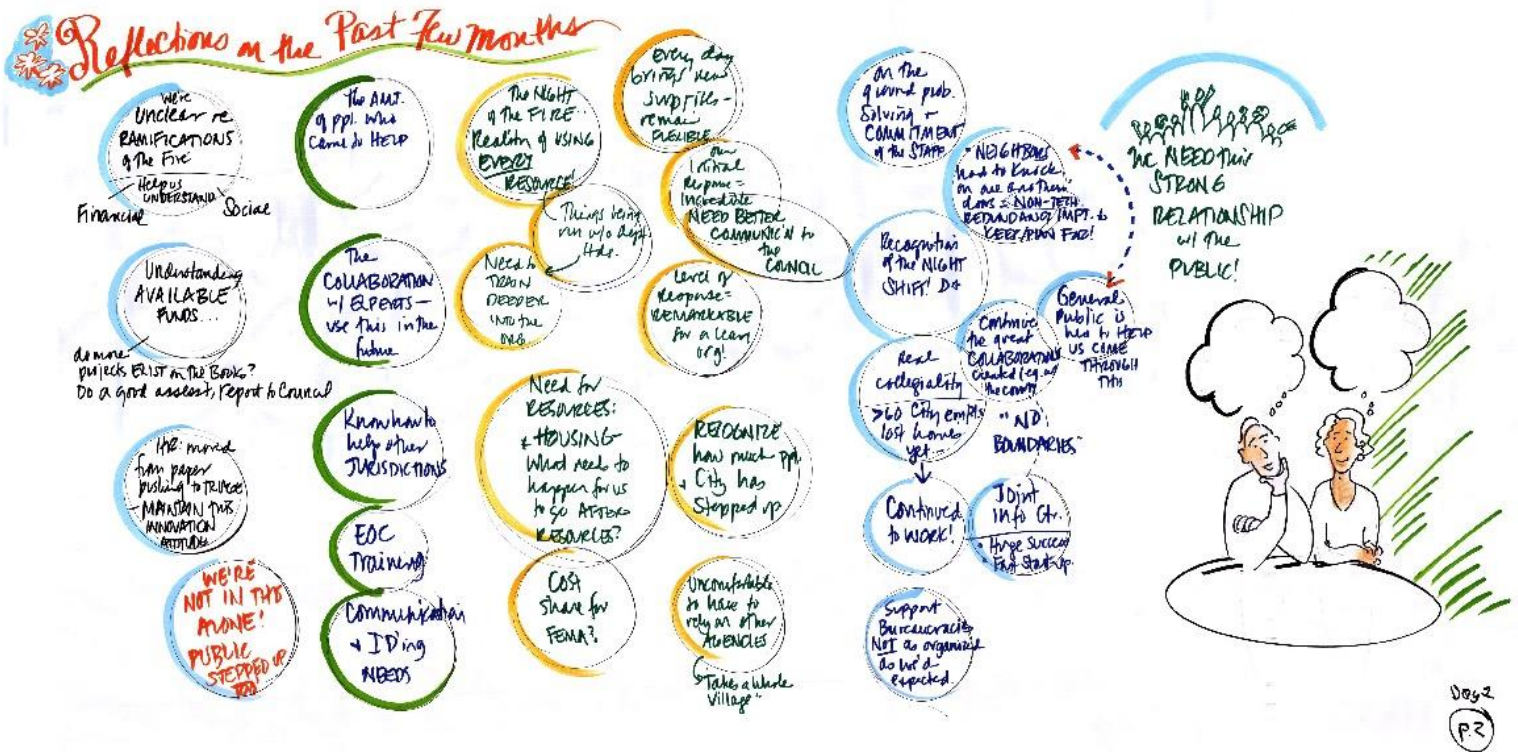 Reflections on the Past Few Months
We're
Unclear re
RAMIFICATIONS
of the Fire
Help us
UNDERSTAND
Financial
Social
Understanding
AVAILABLE
FUNDS...
do more
projects EXIST on the BOOKS?
Do a good assessmt, report to Council
HR moved
from paper
pushing to TRIAGE
- MAINTAIN THIS
INNOVATION
ATTITUDE
WE'RE
NOT IN THIS
ALONE!
PUBLIC
STEPPED UP
TOO
The AMT.
of ppl. who
came to HELP
The
COLLABORATION
w/ EXPERTS—
use this in the
future
Know how to
help other
JURISDICTIONS
EOC
Training
Communication
+ ID'ing
NEEDS
The NIGHT
of the FIRE..
Realizn of USING
EVERY
RESOURCE!
Things being
run w/o dept.
Hds.
Need to
TRAIN
DEEPER
INTO the
ORG
Need for
RESOURCES:
HOUSING-
What needs to
happen for us
to go AFTER
RESOURCES?
Cost
share for
FEMA?
Every day
brings new
surprises-
remain
FLEXIBLE
our
Initial
Response=
Incredible
NEED BETTER
COMMUNIC'N to
the
COUNCIL
Level of
Response=
REMARKABLE
for a lean
org!
RECOGNIZE
how much ppl
+ City has
Stepped up
Uncomfortable
to have to
rely on other
AGENCIES
"Takes a Whole
Village"
On the
ground prob.
Solving +
COMMITMENT
of the STAFF
"NEIGHBORS
had to knock
on one another's
doors = NON-TECH.
REDUNDANCY IMPT. to
KEEP/PLAN FOR!
Recognition
of the NIGHT
SHIFT!
Real
collegiality
>60 City empls
lost homes
yet...
Continued
to WORK!
Support
Bureaucracies
NOT as organized
as we'd
expected.
Continue
the great
COLLABORATION
created (eg. w/
the county
"NO
BOUNDARIES"
Joint
Info Ctr.
• Huge Success
• Fast Start-up
General
Public is
had to HELP
US COME
THROUGH
THIS
We NEED this
STRONG
RELATIONSHIP
w/ the
PUBLIC!
Day 2
P.2